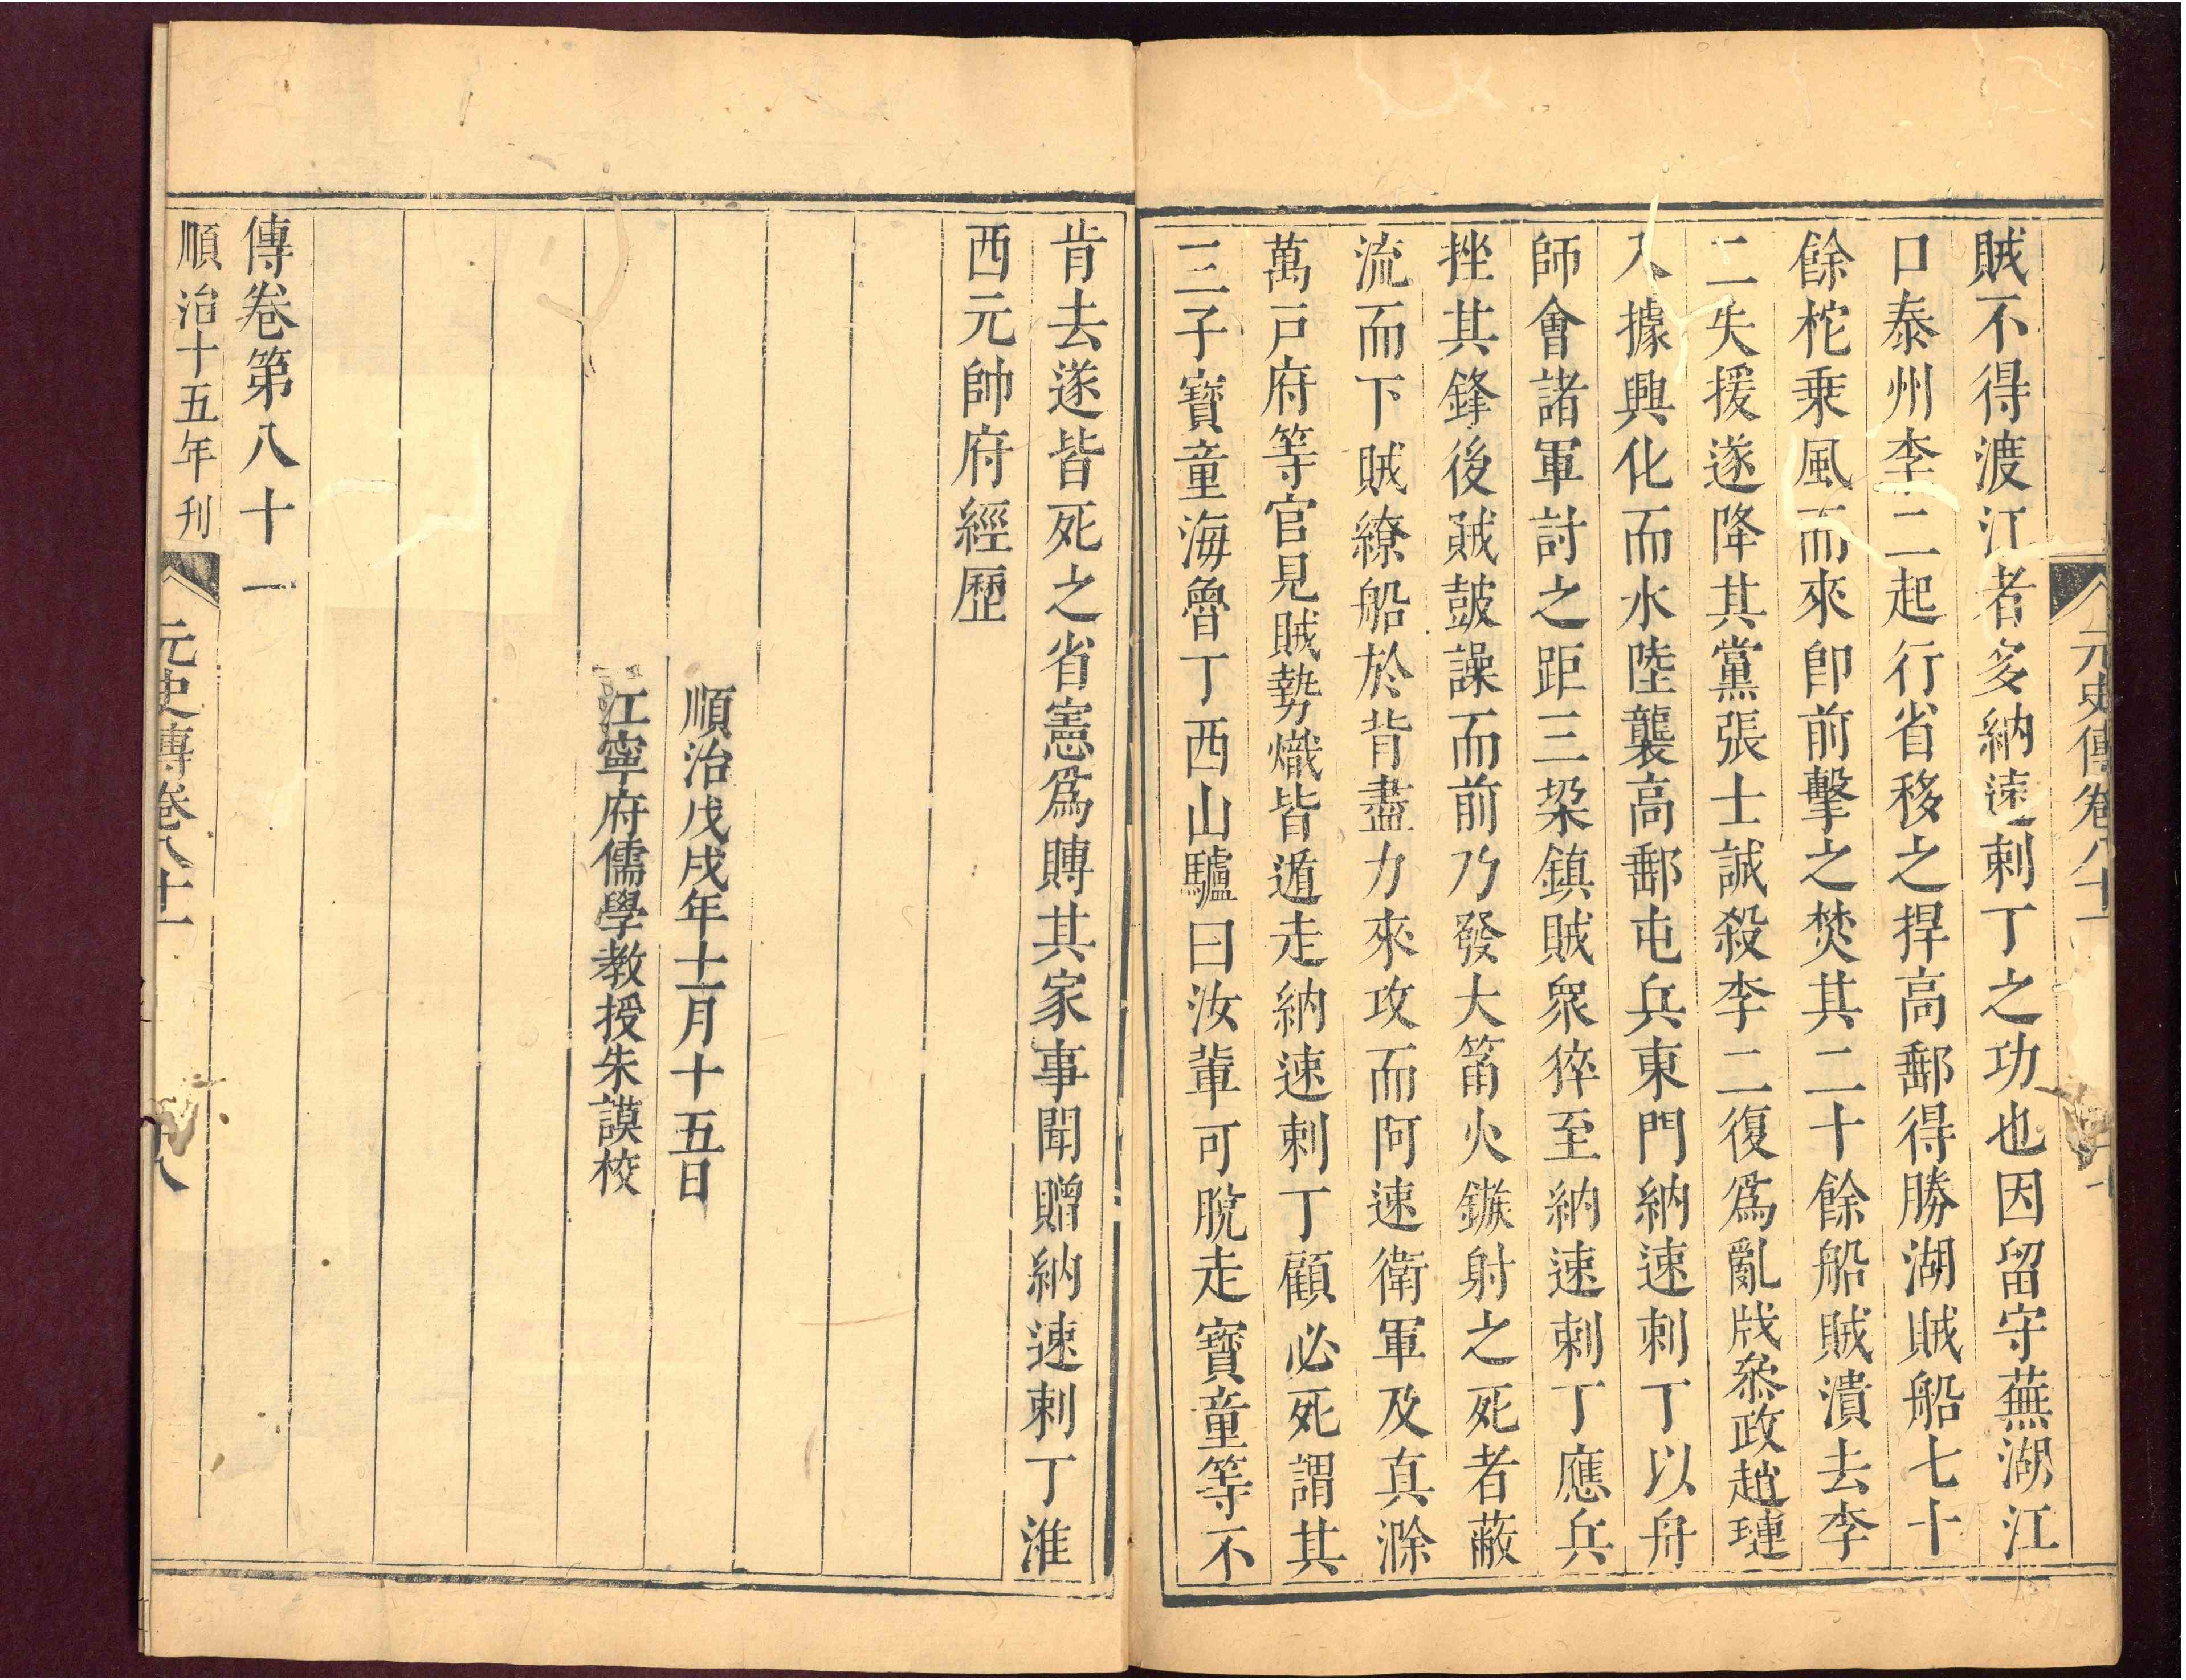 元史傳卷八十一
賊不得渡江者多納速剌丁之功也因留守蕪湖江
口泰州李二起行省移之捍高郵得勝湖賊船七十
餘柁乗風而來即前擊之焚其二十餘船賊潰去李
二失援遂降其黨張士誠殺李二復爲亂戕叅政趙璉
入據興化而水陸襲高郵屯兵東門納速剌丁以舟
師會諸軍討之距三垜鎮賊衆猝至納速剌丁應兵
挫其鋒後賊鼓譟而前乃發大筩火鏃射之死者蔽
流而下賊繚船於背盡力來攻而阿速衛軍及真滁
萬戸府等官見賊勢熾皆遁走納速剌丁顧必死謂其
三子寳童海魯丁西山驢曰汝輩可脫走寳童等不
肯去遂皆死之省憲爲賻其家事聞贈納速剌丁淮
西元帥府經歷
順治戊戌年十一月十五日
江寧府儒學教授朱謨校
傳卷第八十一
順治十五年刊
元史傳卷八十一
八